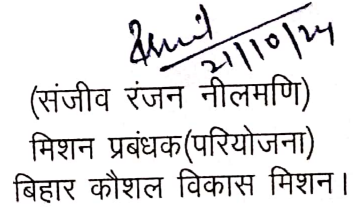 21/10/24
(संजीव रंजन नीलमणि)
मिशन प्रबंधक(परियोजना)
बिहार कौशल विकास मिशन।